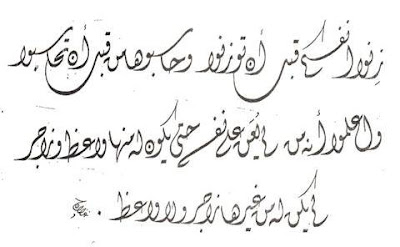 زنوا أنفسكم قبل أن توزنوا وحاسبوها من قبل أن تحاسبوا
واعلموا أنه من لم يعن على نفسه حتى يكون له منها واعظ وزاجر
لم يكن له من غيرها زاجر ولا واعظ .